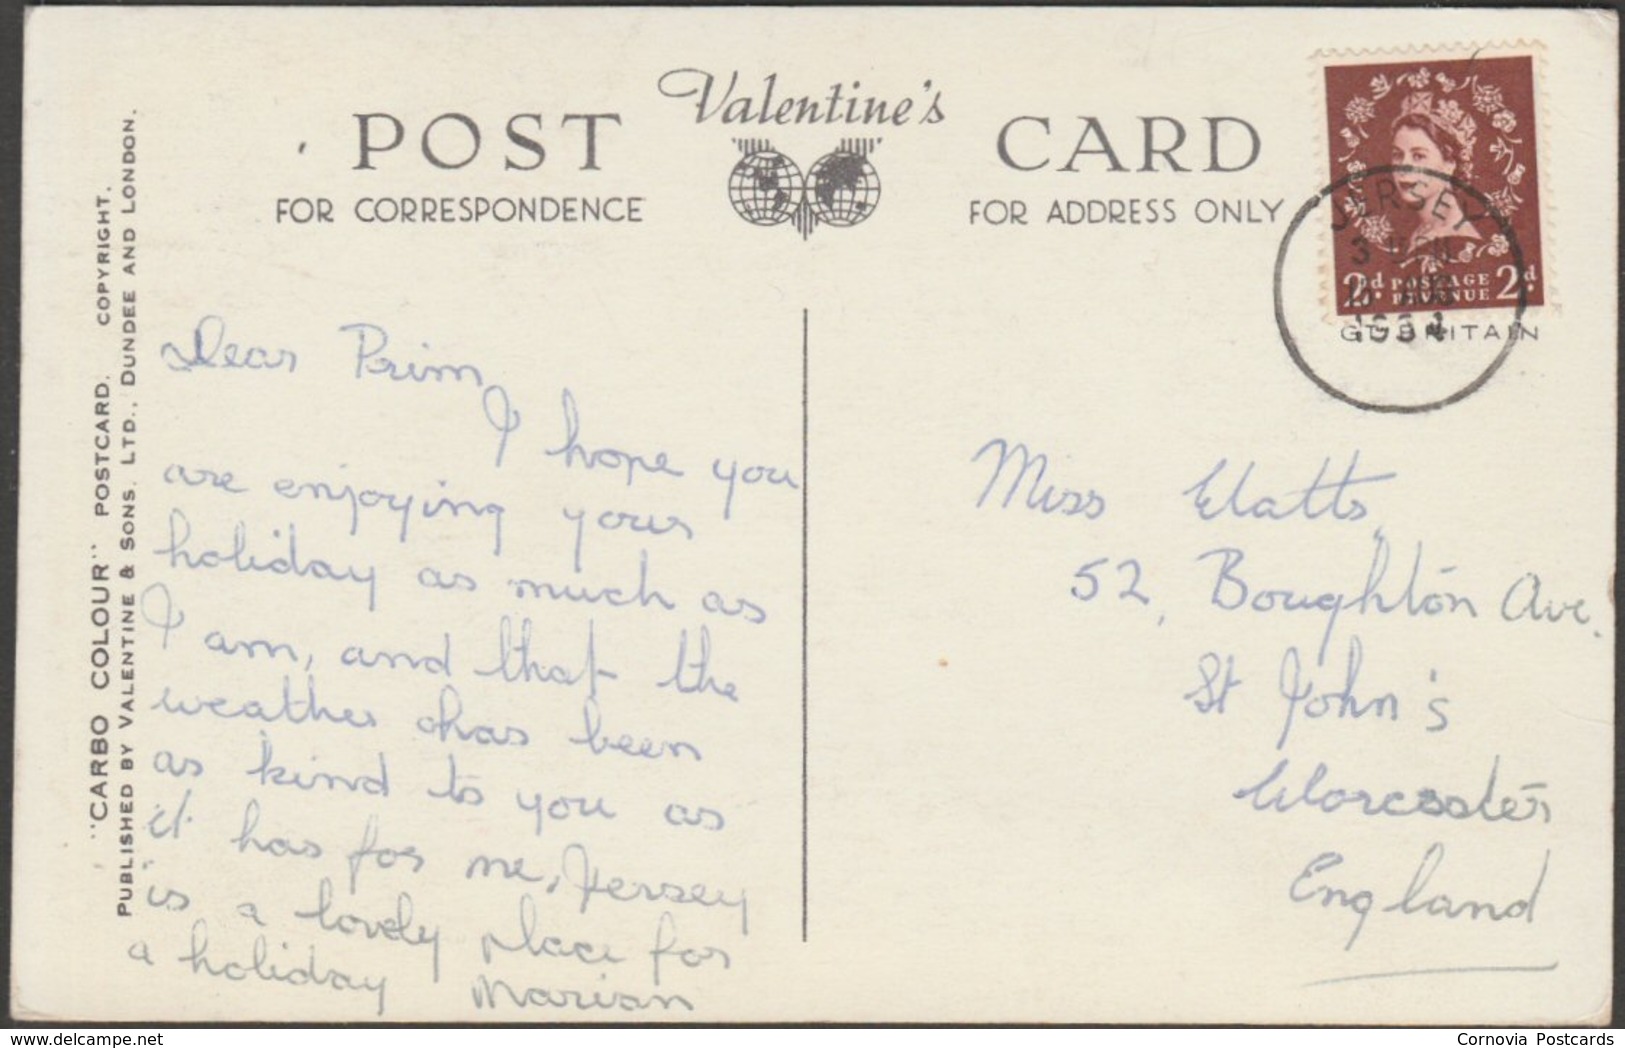 Valentine's
POST CARD
FOR CORRESPONDENCE
FOR ADDRESS ONLY
"CARBO COLOUR" POSTCARD. COPYRIGHT.
PUBLISHED BY VALENTINE & SONS. LTD., DUNDEE AND LONDON.
Dear Prim
I hope you
are enjoying your
holiday as much as
I am, and that the
weather has been
as kind to you as
it has for me, Jersey
is a lovely place for
a holiday Marian
2d POSTAGE 2d
REVENUE
JERSEY
AUG
GT. BRITAIN
Miss
52, Boughton Ave.
St John's
Worcester
England
delcampe.net
Cornovia Postcards